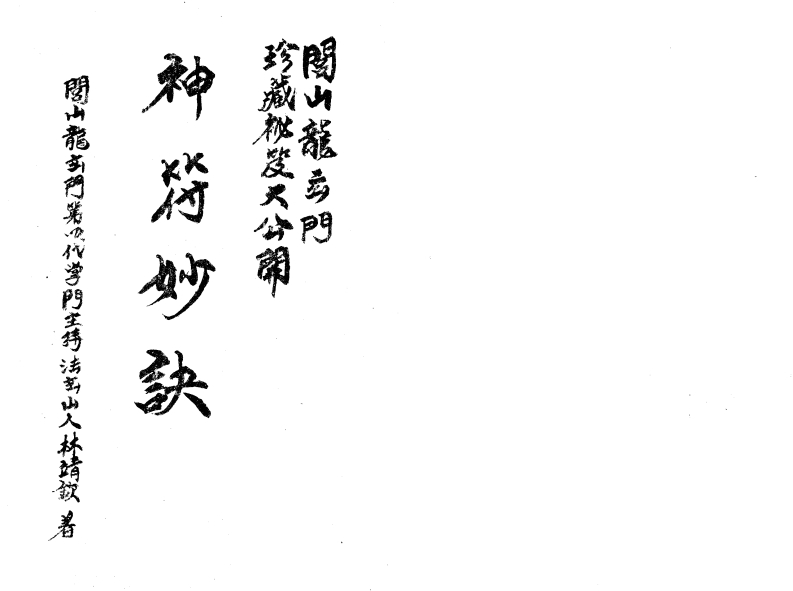 閭山龍玄門
珍藏秘笈大公開
神符妙訣
閭山龍玄門第四代掌門主持法玄山人林靖欽 著